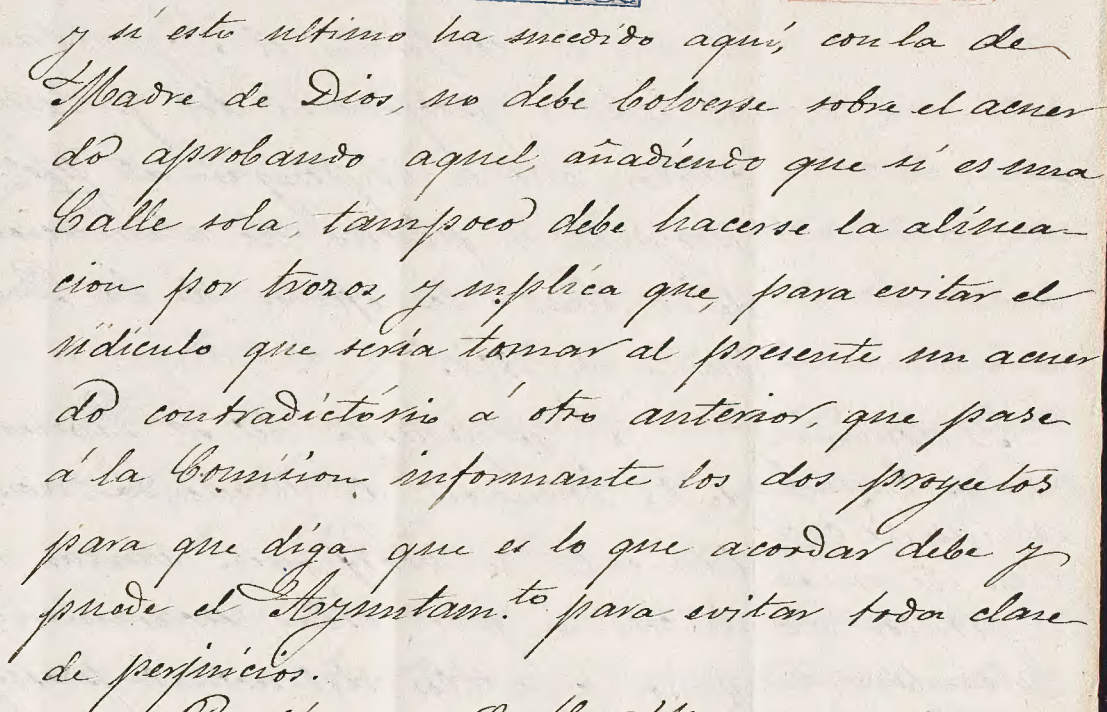 y si esto ultimo ha sucedido aquí, con la de
Madre de Dios, no debe bolverse sobre el acuer
do aprobando aquel, añadiendo que si es una
Calle sola, tampoco debe hacerse la alinea-
cion por trozos, y suplica que, para evitar el
ridiculo que seria tomar al presente un acuer
do contradictório á otro anterior, que pase
á la Comision informante los dos proyectos
para que diga que es lo que acordar debe y
puede el Ayuntam.to para evitar toda clase
de perjuicios.